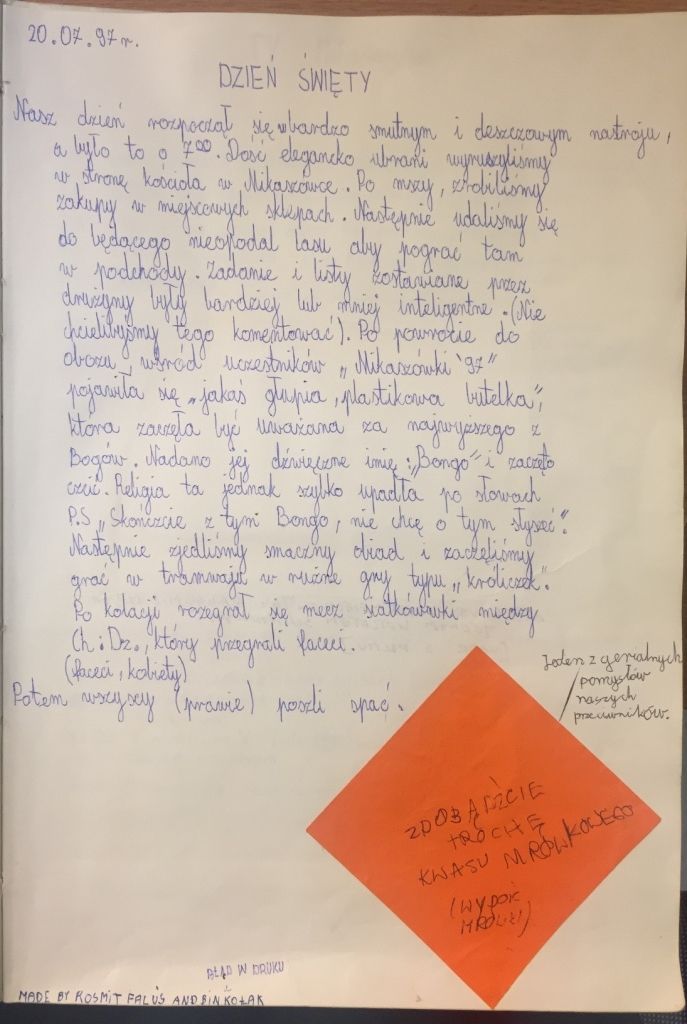 20.07.97r.
DZIEŃ ŚWIĘTY
Nasz dzień rozpoczął się w bardzo smutnym i deszczowym nastroju,
a było to o 7⁰⁰. Dość elegancko ubrani wyruszyliśmy
w stronę kościoła w Mikaszówce. Po mszy, zrobiliśmy
zakupy w miejscowych sklepach. Następnie udaliśmy się
do będącego nieopodal lasu aby pograć tam
w podchody. Zadanie i listy zostawiane przez
drużyny były bardziej lub mniej inteligentne. (Nie
chcielibyśmy tego komentować). Po powrocie do
obozu, wśród uczestników „Mikaszówki '97"
pojawiła się „jakaś głupia, plastikowa butelka",
która zaczęła być uważana za najwyższego z
Bogów. Nadano jej dźwięczne imię: „Bongo" i zaczęto
czcić. Religia ta jednak szybko upadła po słowach
P.S „Skończcie z tym Bongo, nie chcę o tym słyszeć".
Następnie zjedliśmy smaczny obiad i zaczęliśmy
grać w tramwaju w rużne gry typu „króliczek".
Po kolacji rozegrał się mecz siatkówki między
Ch: Dz., który przegrali faceci.
(faceci, kobiety)
Potem wszyscy (prawie) poszli spać.
Jeden z genialnych
pomysłów
naszych
przeciwników.
ZDOBĄDŹCIE
TROCHĘ
KWASU MRÓWKOWEGO
(WYDOIĆ
MRÓWKI)
BŁĄD W DRUKU
MADE BY ROSMIT FALUŚ AND BIN KOŁAK